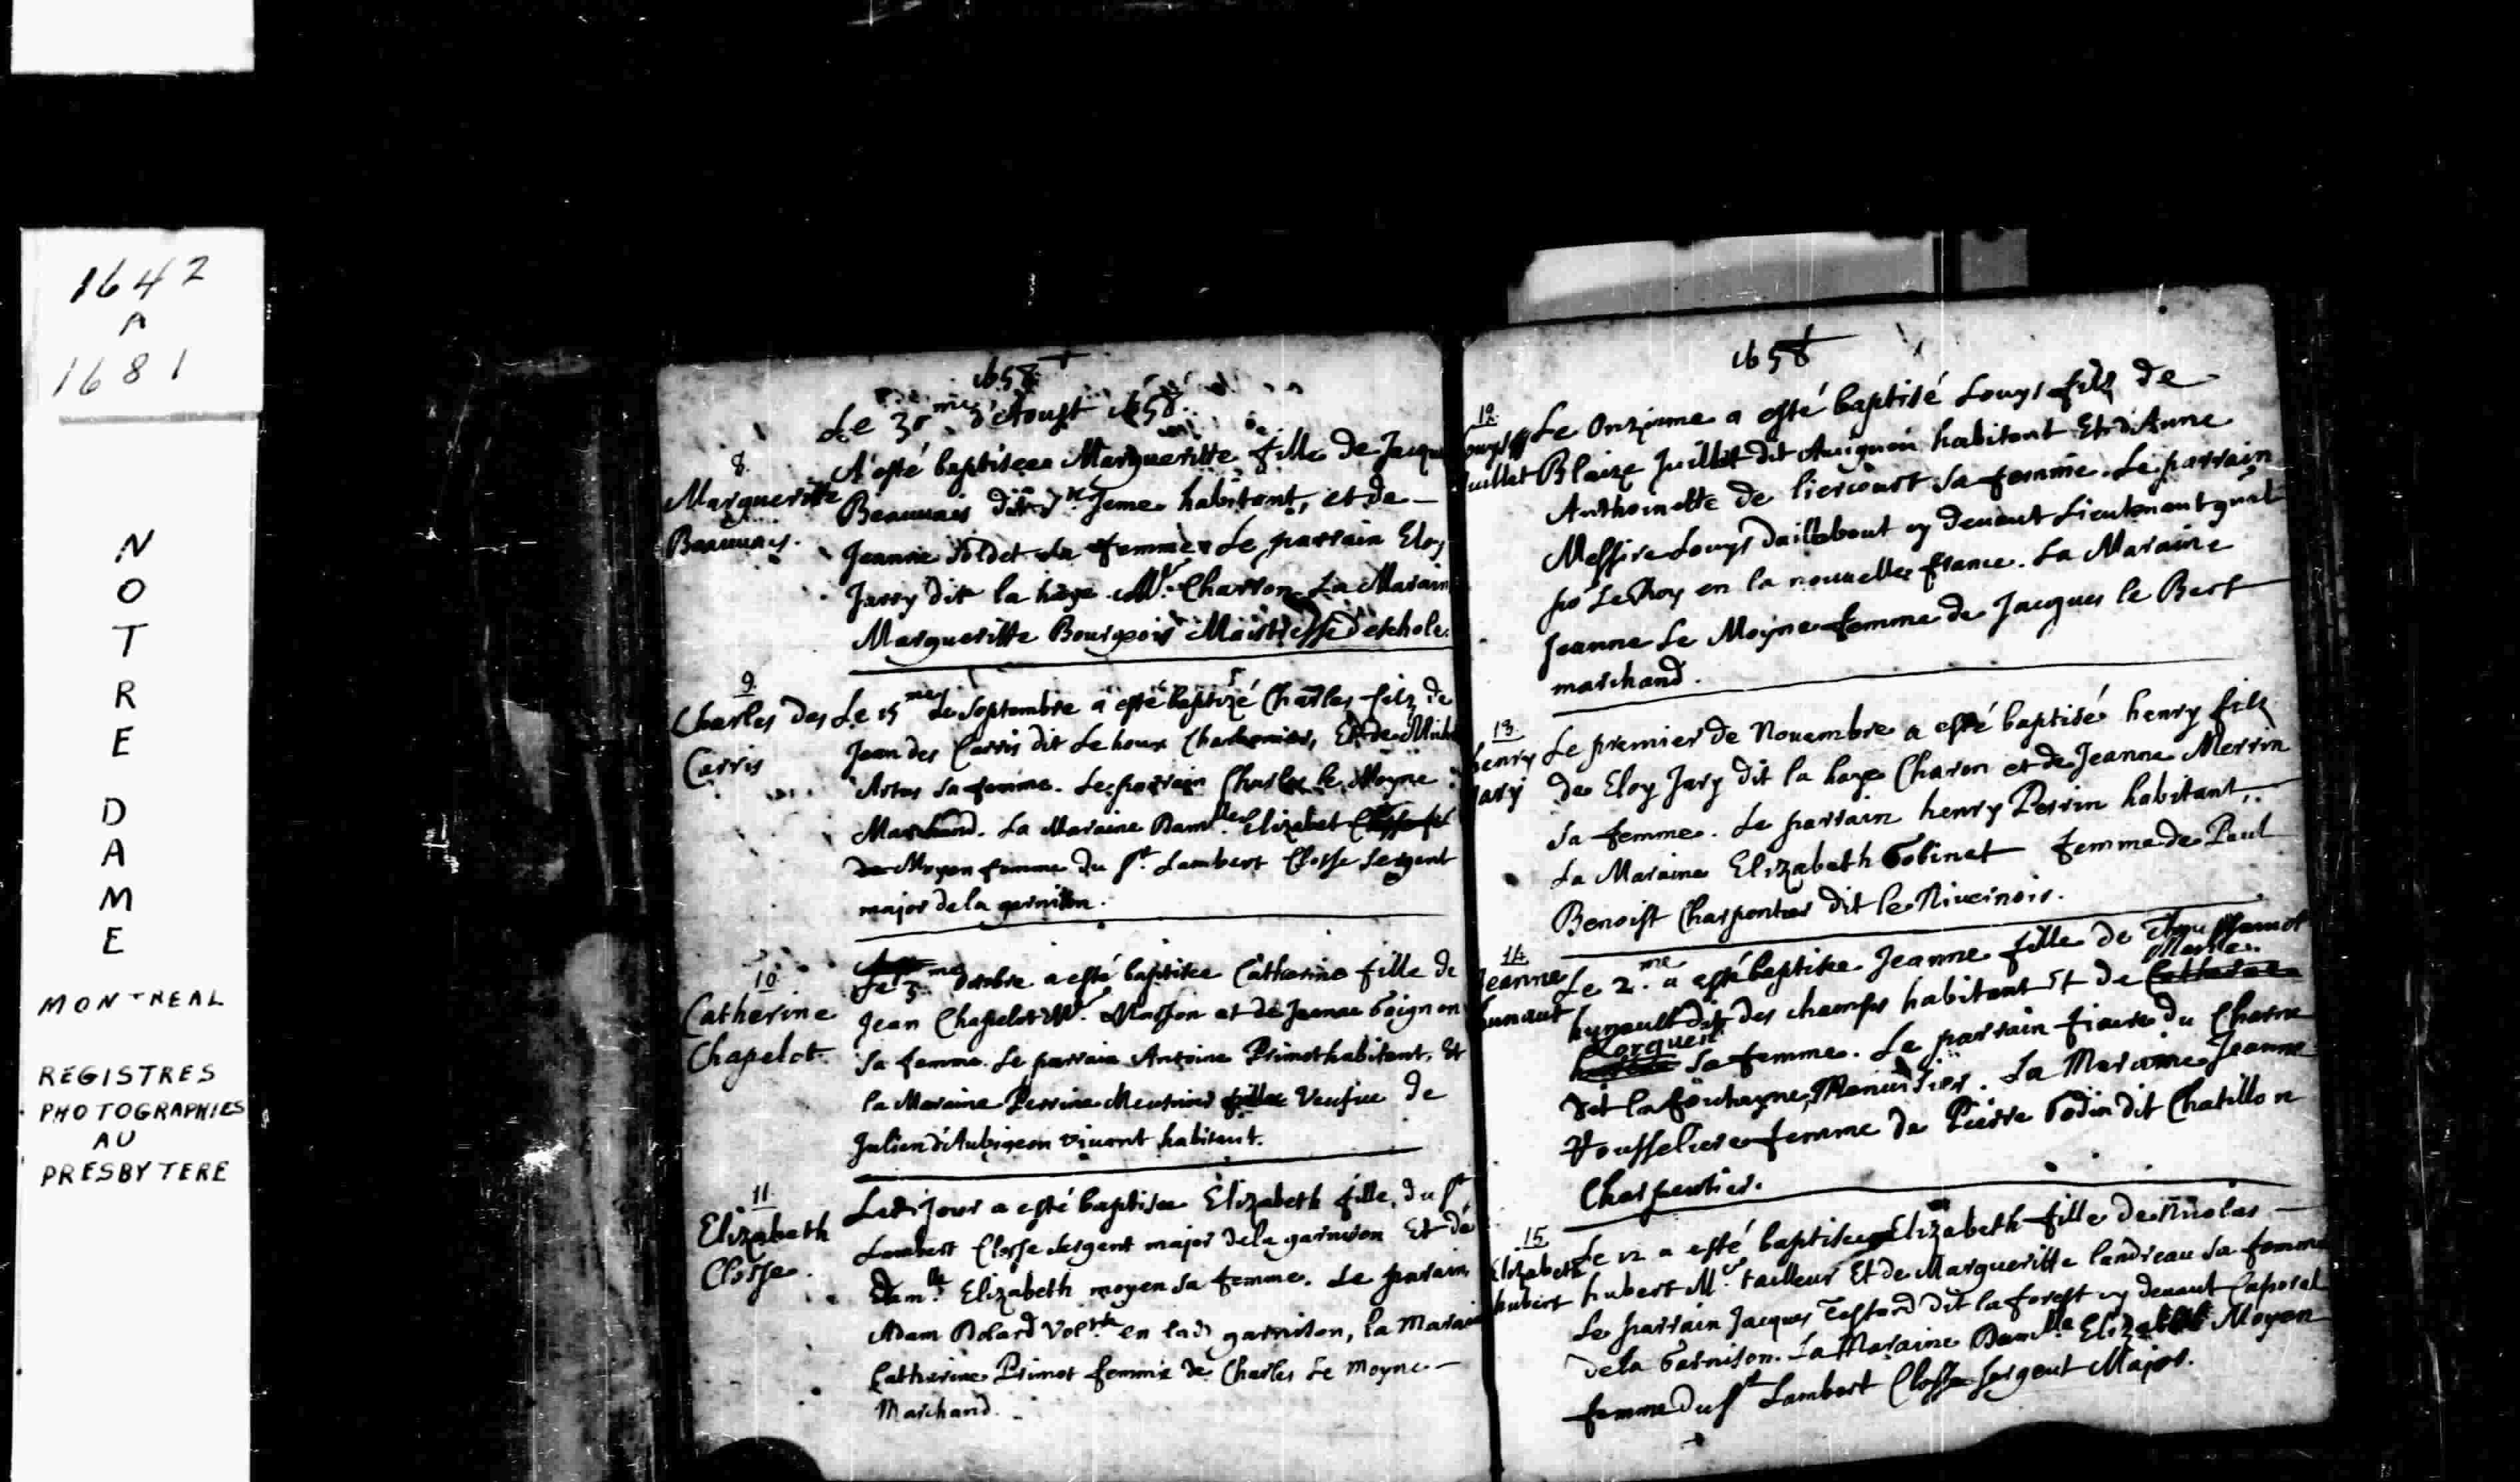 1642
A
1681
NOTRE
DAME
MONTREAL
REGISTRES
PHOTOGRAPHIES
AU
PRESBYTERE
1658
Le 30me d'Aoust 1658.
8.
Margueritte
Beauvais.
A esté baptisée Margueritte fille de Jacque
Beauvais dit St Jeme habitant, et de
Jeanne Soldet sa femme. Le parrain Eloy
Jarry dit la haye Mr. Charron. La Marain
Margueritte Bourgeois Maistresse d'eschole.
9.
Charles des
Carris
Le 15me de Septembre a esté baptizé Charles filz de
Jean des Carris dit Le houx Charbonnier, Et de Mich
Artus sa femme. Le parrain Charles le Moyne
Marchand. La Maraine Damlle Elizabet
Moyen femme du Sr. Lambert Closse Sergent
major de la garnison.
10
Catherine
Chapelot.
Le 3me Octobre a esté baptisée Catherine fille de
Jean Chapelot Mr. Masson et de Jeanne Goignon
sa femme. Le parrain Antoine Primot habitant, Et
la Maraine Perrine Meusnier fille Veufue de
Julien d'Aubigeon vivant habitant.
11.
Elizabeth
Closse.
Ledt jour a esté baptisée Elizabeth fille du Sr
Lambert Closse sergent major de la garnison Et de
Damlle Elizabeth moyen sa femme. Le parain
Adam Dolard Volre en lad garnison, la Marai
Catherine Primot femme de Charles Le Moyne
Marchand.
1658
12.
Louys
Juillet
Le Onzieme a esté baptisé Louys filz de
Blaize Juillet dit Avignon habitant Et d'Anne
Anthoinette de liercourt sa femme. Le parrain
Messire Louys Daillebout cy devant Lieutenant gnal
po Le Roy en la nouvelle france. La Maraine
Jeanne Le Moyne femme de Jacques le Bert
marchand.
13
henry
Jary
Le premier de Novembre a esté baptisé henry filz
de Eloy Jary dit la haye Charon et de Jeanne Merrin
sa femme. Le parrain henry Perrin habitant,
La Maraine Elizabeth Gobinet femme de Paul
Benoist Charpentier dit le Nivernois.
14
Jeanne
hunaut
Le 2.me a esté baptisée Jeanne fille de Toussainct
hunault dit des champs habitant Et de Catherine Marie
Lorgueil sa femme. Le parrain fiacre du Charne
dit la fontayne, Menuisier. La Maraine Jeanne
Rousseliere femme de Pierre Godin dit Chatillon
Charpentier.
15.
Elizabeth
hubert
Le 12 a esté baptisée Elizabeth fille de Nicolas
hubert Mr. tailleur Et de Margueritte landreau sa femme
Le parrain Jacques Testard dit la forest cy devant Caporal
de la Garnison. La Maraine Damlle Elizabeth Moyen
femme du Sr Lambert Closse Sergent Major.